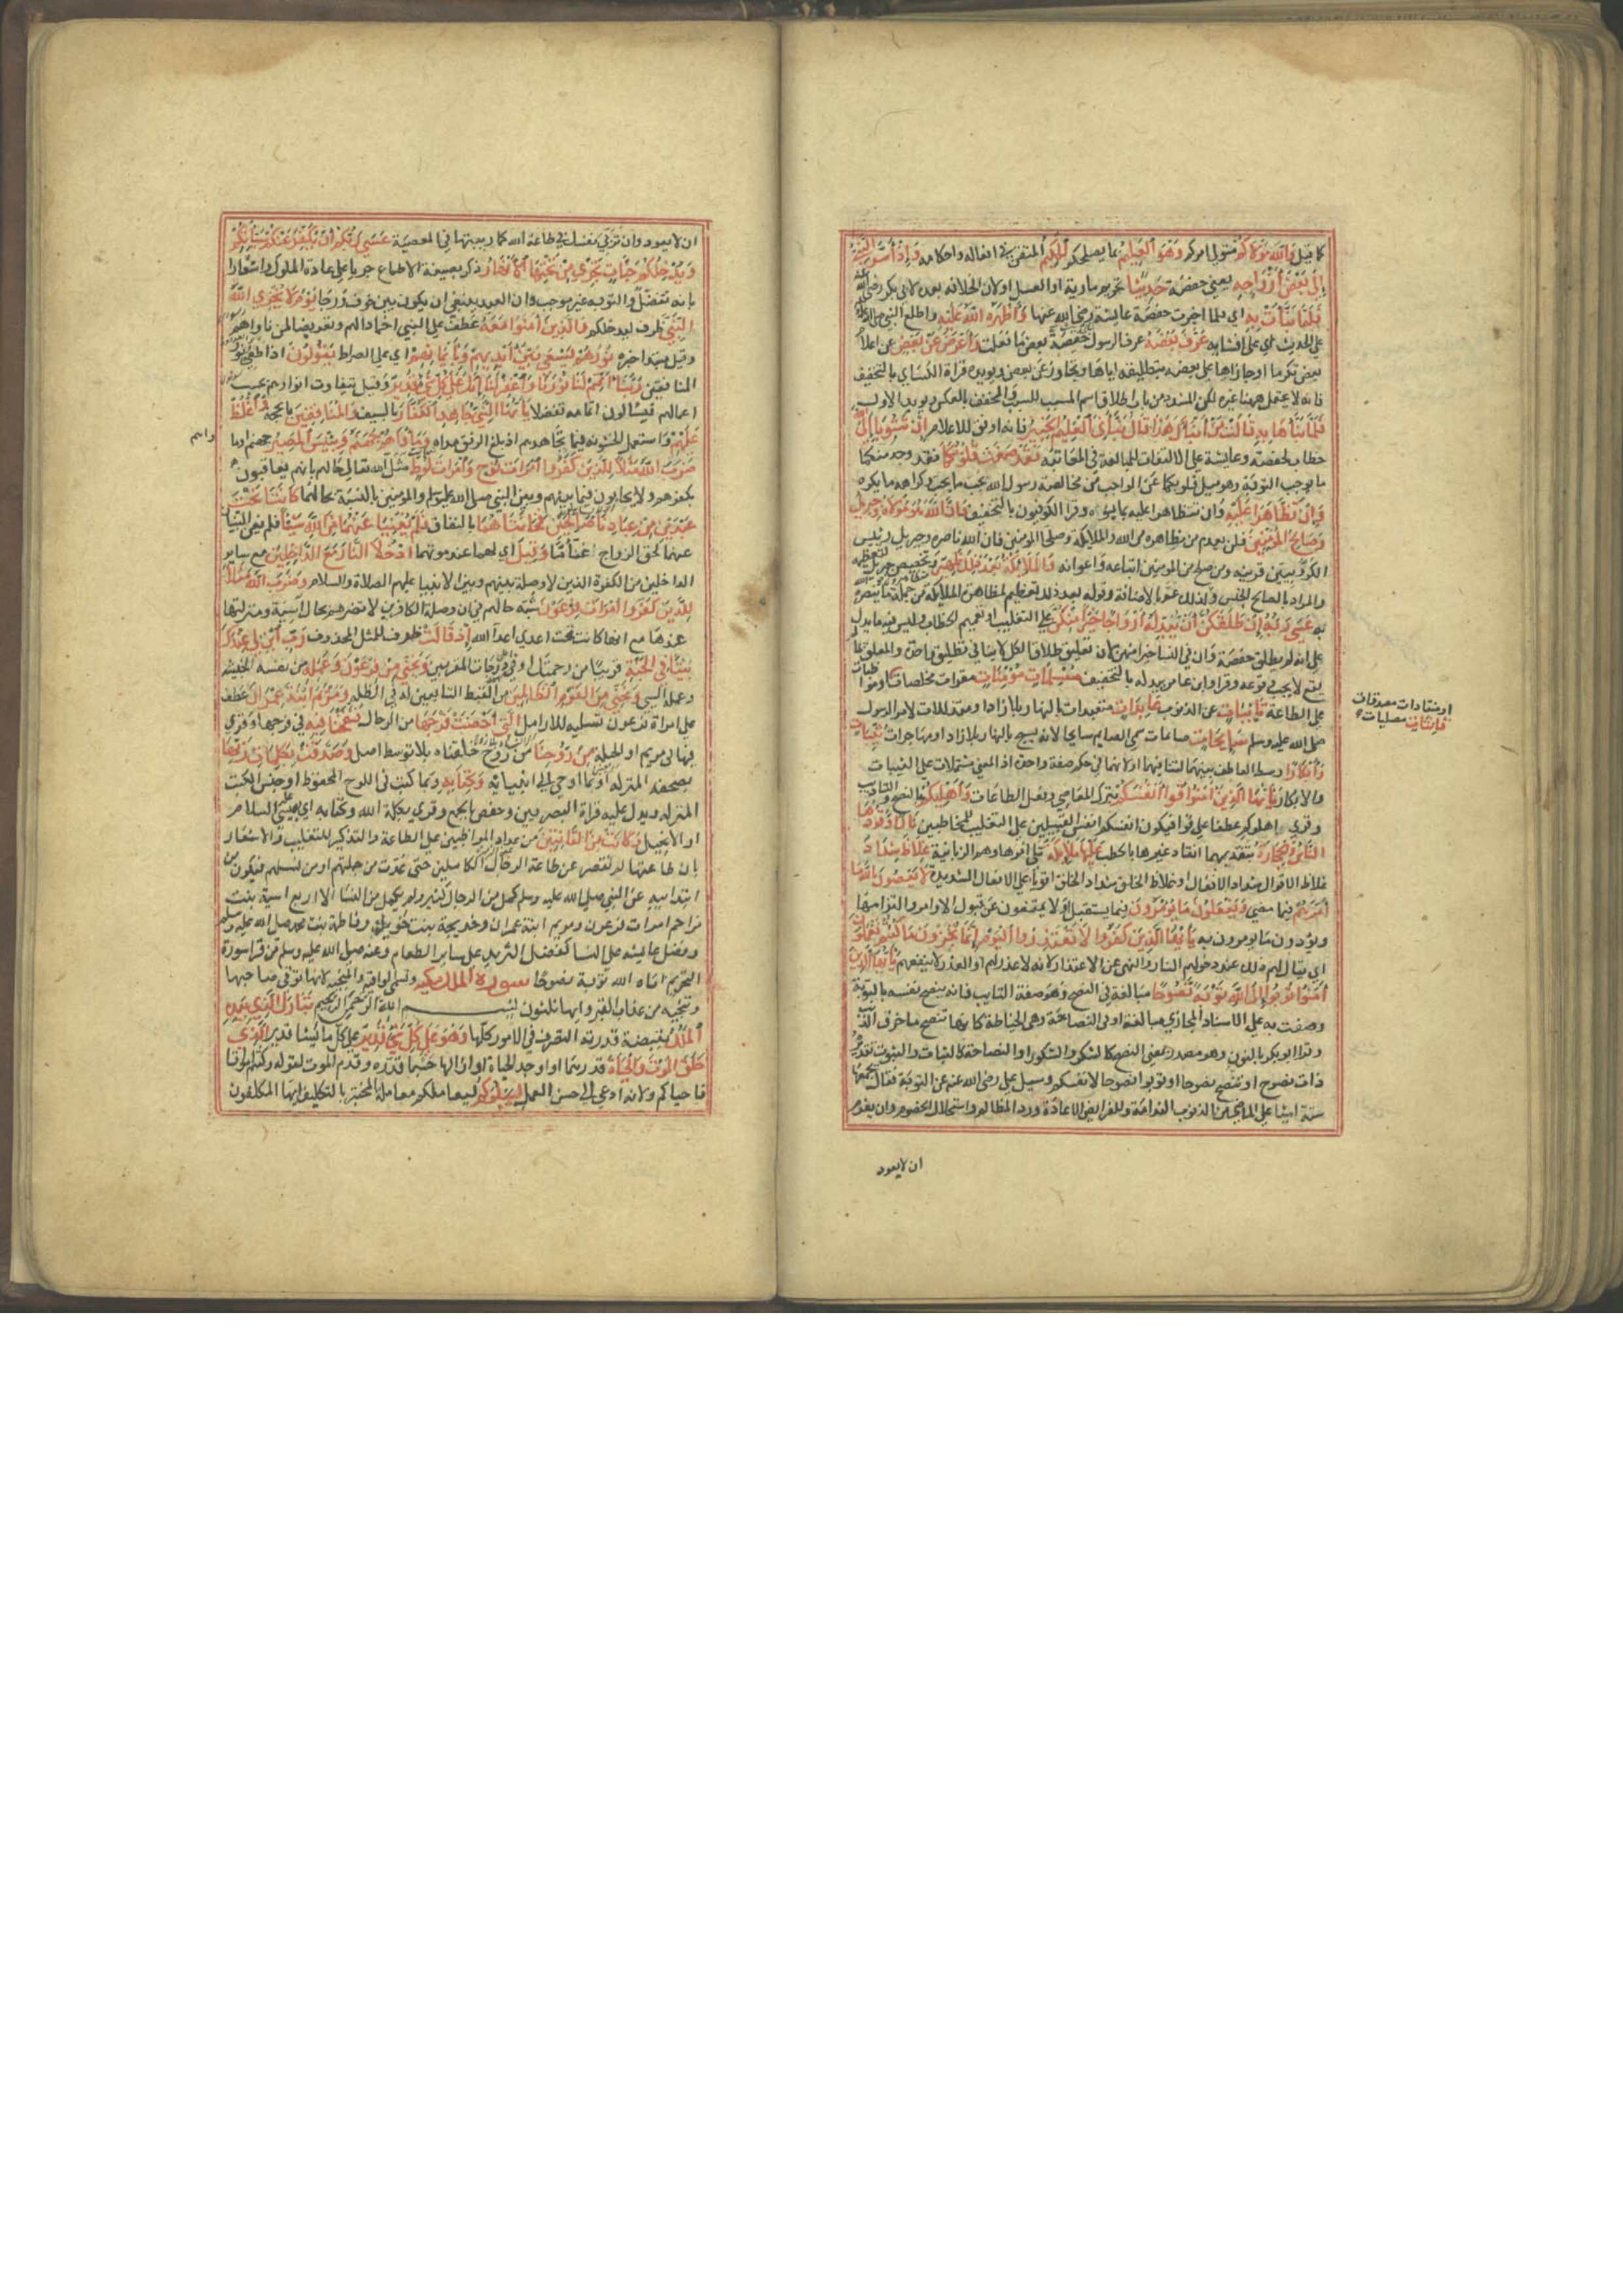 كما قيل والله موليكم متولي امركم وهو العليم بما يصلحكم الحكيم المتقن في افعاله واحكامه واذ اسر النبي
الى بعض ازواجه يعني حفصة حديثا تحريم مارية او العسل او ان الخلافة بعده لابي بكر رضي الله
فلما نبأت به اي فلما اخبرت حفصة عايشة رضي الله عنها واظهره الله عليه واطلع النبي صلى الله
على الحديث اي على افشايه عرف بعضه عرف الرسول حفصة بعض ما فعلت واعرض عن بعض عن اعلام
بعض تكرما او جازاها على بعضه بتطليقه اياها وتجاوز عن بعض ويويده قراة الكساي بالتخفيف
فانه لا يحتمل ههنا غيره لكن المشدد من باب اطلاق اسم المسبب للسبب والمخفف بالعكس ويويد الاول
فلما نبأها به قالت من انبأك هذا قال نبأني العليم الخبير فانه اوفق للاعلام ان تتوبا الى الله
خطاب لحفصة وعايشة على الالتفات للمبالغة في المعاتبة فقد صغت قلوبكما فقد وجد منكما
ما يوجب التوبة وهو ميل قلوبكما عن الواجب من مخالصة رسول الله بحب ما يحبه وكراهه ما يكره
وان تظاهرا عليه وان تتظاهرا عليه بما يسوه وقرا الكوفيون بالتخفيف فان الله هو موليه وجبريل
وصالح المومنين فلن يعدم من يظاهره من الله والملايكة وصلحا المومنين فان الله ناصره وجبريل رييس
الكروبيين قرينه ومن صلح من المومنين اتباعه واعوانه والملايكة بعد ذلك ظهير وتخصيص جبريل لتعظيمه
والمراد بالصالح الجنس ولذلك عم بالاضافة وقوله بعد ذلك تعظيم لمظاهرة الملايكة من جملة ما ينصره
به عسى ربه ان طلقكن ان يبدله ازواجا خيرا منكن على التغليب او تعميم الخطاب وليس فيه ما يدل
على انه لم يطلق حفصة وان في النسا خيرا منهن لان تعليق طلاق الكل لا ينافي تطليق واحدة والمعلق بما
لم يقع لا يجب وقوعه وقرا وابن عامر يبدله بالتخفيف مسلمات مومنات مقرات مخلصات
على الطاعة تايبات عن الذنوب عابدات متعبدات او متذللات لامر الرسول
صلى الله عليه وسلم سايحات صايمات سمي الصايم سايحا لانه يسيح بالنهار بلا زاد او مهاجرات ثيبات
وابكارا وسط العاطف بينهما لتنافيهما او لانهما في حكم صفة واحدة اذ المعنى مشتملات على الثيبات
والابكار يا ايها الذين امنوا قوا انفسكم بترك المعاصي وفعل الطاعات واهليكم بالنصح والتاديب
وقري واهلوكم عطفا على قوا فيكون انفسكم انفس القبيلين على التغليب المخاطبين نارا وقودها
الناس والحجارة تتقد بهما اتقاد غيرها بالحطب عليها ملايكة تلي امرها وهم الزبانية غلاظ شداد
غلاظ الاقوال شداد الافعال او غلاظ الخلق شداد الخلق اقويا على الافعال الشديدة لا يعصون الله ما
امرهم فيما مضى ويفعلون ما يومرون فيما يستقبل او لا يمتنعون عن قبول الاوامر والتزامها
ويودون ما يومرون به يا ايها الذين كفروا لا تعتذروا اليوم انما تجزون ما كنتم تعملون
اي يقال لهم ذلك عند دخولهم النار والنهي عن الاعتذار لانه لا عذر لهم او العذر لا ينفعهم يا ايها الذين
امنوا توبوا الى الله توبة نصوحا مبالغة في النصح وهو صفة التايب فانه ينصح نفسه بالتوبة
وصفت به على الاسناد المجازي مبالغة او في النصاحة وهي الخياطة كانها تنصح ما خرق الذنب
وقرا ابو بكر بالنون وهو مصدر بمعنى النصح كالشكر والشكور او النصاحة كالثبات والثبوت تقديره
ذات نصوح او تنصح نصوحا او توبوا نصوحا لانفسكم وسيل علي رضى الله عنه عن التوبة فقال يجمعها
ستة اشيا على الماضي من الذنوب الندامة وللفرايض الاعادة ورد المظالم واستحلال الخصوم وان يعزم
ان لا يعود
او منقادات مصدقات
قانتات مصليات
ان لا يعود وان تربي نفسك في طاعة الله كما ربيتها في المعصية عسى ربكم ان يكفر عنكم سياتكم
ويدخلكم جنات تجري من تحتها الانهار ذكر بصيغة الاطماع جريا على عادة الملوك واشعارا
بانه تفضل والتوبة غير موجب وان العبد ينبغي ان يكون بين خوف ورجا يوم لا يخزي الله
النبي ظرف ليدخلكم والذين امنوا معه عطف على النبي احمادا لهم وتعريضا لمن ناواهم
وقيل مبتدا خبره نورهم يسعى بين ايديهم وبايمانهم اي على الصراط يقولون اذا طفي نور
المنافقين ربنا اتمم لنا نورنا واغفر لنا انك على كل شي قدير وقيل تتفاوت انوارهم بحسب
اعمالهم فيسالون اتمامه تفضلا يا ايها النبي جاهد الكفار بالسيف والمنافقين بالحجة واغلظ
عليهم واستعمل الخشونة فيما تجاهدهم اذ بلغ الرفق مداه وماواهم جهنم وبيس المصير جهنم او ما
واهم
ضرب الله مثلا للذين كفروا امرات نوح وامرات لوط مثل الله تعالى حالهم بانهم يعاقبون
بكفرهم ولا يحابون فيما بينهم وبين النبي صلى الله عليه وسلم والمومنين بالنسبة بحالهما كانتا تحت
عبدين من عبادنا صالحين فخانتاهما بالنفاق فلم يغنيا عنهما من الله شيا فلم يغن النبيان
عنهما لحق الزواج اغنا ما وقيل اي لهما عند موتهما ادخلا النار مع الداخلين مع ساير
الداخلين من الكفرة الذين لا وصلة بينهم وبين الانبيا عليهم الصلاة والسلام وضرب الله مثلا
للذين كفروا امرات فرعون شبه حالهم في ان وصلة الكافرين لا تضرهم بحال آسية ومنزلتها
عندها مع انها كانت تحت اعدي اعدآ الله اذ قالت ظرف للمثل المحذوف رب ابن لي عندك
بيتا في الجنة قريبا من رحمتك او في درجات المقربين ونجني من فرعون وعمله من نفسه الخبيثة
وعمله السي ونجني من القوم الظالمين من القبط التابعين له في الظلم ومريم ابنة عمران عطف
على امراة فرعون تسلية للارامل التي احصنت فرجها من الرجال فنفخنا فيه في فرجها وقري
فيها اي مريم او الجملة من روحنا من روح خلقناه بلا توسط اصل وصدقت بكلمات ربها
بصحفه المنزلة او بما اوحى الى انبيايه وكتابه وبما كتب في اللوح المحفوظ او جنس الكتب
المنزلة ويدل عليه قراة البصريين وحفص بالجمع وقري بكلمة الله وكتابه اي بعيسى عليه السلام
او الانجيل وكانت من القانتين من عداد المواظبين على الطاعة والتذكير للتغليب والاشعار
بان طاعتها لم تقصر عن طاعة الرجال الكاملين حتى عدت من جملتهم او من نسلهم فتكون من
ابتدايية عن النبي صلى الله عليه وسلم كمل من الرجال كثير ولم يكمل من النسا الا اربع اسية بنت
مزاحم امرات فرعون ومريم ابنة عمران وخديجة بنت خويلد وفاطمة بنت محمد صلى الله عليه وسلم
وفضل عايشة على النسا كفضل الثريد على ساير الطعام وعنه صلى الله عليه وسلم من قرا سورة
التحريم اتاه الله توبة نصوحا سورة الملك مكية وتسمى الواقية والمنجية لانها تقي صاحبها
وتنجيه من عذاب القبر وايها ثلثون بسم الله الرحمن الرحيم تبارك الذي بيده
الملك بقبضة قدرته التصرف في الامور كلها وهو على كل شي قدير على كل ما يشا قدير الذي
خلق الموت والحياة قدرهما او اوجد الحياة او ازالها حسبما قدره وقدم الموت لقوله وكنتم امواتا
فاحياكم ولانه ادعى الى حسن العمل ليبلوكم ليعاملكم معاملة المختبر بالتكليف ايها المكلفون